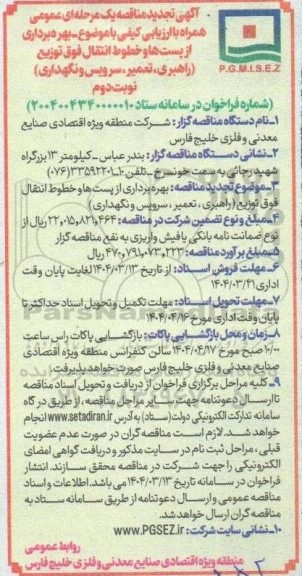 آگهی تجدید مناقصه یک مرحله ای عمومی
همراه با ارزیابی کیفی با موضوع - بهره برداری
از پست ها و خطوط انتقال فوق توزیع
(راهبری ، تعمیر ، سرویس و نگهداری)
نوبت دوم
P.G.M.I.S.E.Z
(شماره فراخوان در سامانه ستاد ۲۰۰۴۰۰۴۳۴۰۰۰۰۰۱۰)
۱- نام دستگاه مناقصه گزار : شرکت منطقه ویژه اقتصادی صنایع
معدنی و فلزی خلیج فارس
۲- نشانی دستگاه مناقصه گزار : بندر عباس - کیلومتر ۱۳ بزرگراه
شهید رجائی به سمت خونسرخ - تلفن ۱۰-۳۳۵۹۲۲۰۱ (۰۷۶)
۳- موضوع تجدید مناقصه : بهره برداری از پست ها و خطوط انتقال
فوق توزیع (راهبری ، تعمیر ، سرویس و نگهداری)
۴- مبلغ و نوع تضمین شرکت در مناقصه : ۲۲،۰۱۵،۸۲۱،۴۶۴ ریال از
نوع ضمانت نامه بانکی یا فیش واریزی به نفع مناقصه گزار
۵- مبلغ برآورد مناقصه : ۴۷۰،۷۹۱،۰۷۳،۲۲۳ ریال
۶- مهلت فروش اسناد : از تاریخ ۱۴۰۴/۰۳/۱۳ لغایت پایان وقت
اداری ۱۴۰۴/۰۳/۲۱
۷- مهلت تحویل اسناد : مهلت تکمیل و تحویل اسناد حداکثر تا
پایان وقت اداری مورخ ۱۴۰۴/۰۴/۱۶
۸- زمان و محل بازگشایی پاکات : بازگشایی پاکات راس ساعت
۱۰/۰۰ صبح مورخ ۱۴۰۴/۰۴/۱۷ سالن کنفرانس منطقه ویژه اقتصادی
صنایع معدنی و فلزی خلیج فارس صورت خواهد پذیرفت
۹- کلیه مراحل برگزاری فراخوان از دریافت و تحویل اسناد مناقصه
تا ارسال دعوتنامه جهت سایر مراحل مناقصه، از طریق درگاه
سامانه تدارکات الکترونیکی دولت (ستاد) به آدرس www.setadiran.ir انجام
خواهد شد. لازم است مناقصه گران در صورت عدم عضویت
قبلی ، مراحل ثبت نام در سایت مذکور و دریافت گواهی امضای
الکترونیکی را جهت شرکت در مناقصه محقق سازند. انتشار
فراخوان در سامانه تاریخ ۱۴۰۴/۰۳/۱۳ می باشد. اطلاعات و اسناد
مناقصه عمومی و ارسال دعوتنامه از طریق سامانه ستاد به
مناقصه گران ارسال خواهد شد.
۱۰- نشانی سایت شرکت : www.PGSEZ.ir
روابط عمومی
منطقه ویژه اقتصادی صنایع معدنی و فلزی خلیج فارس